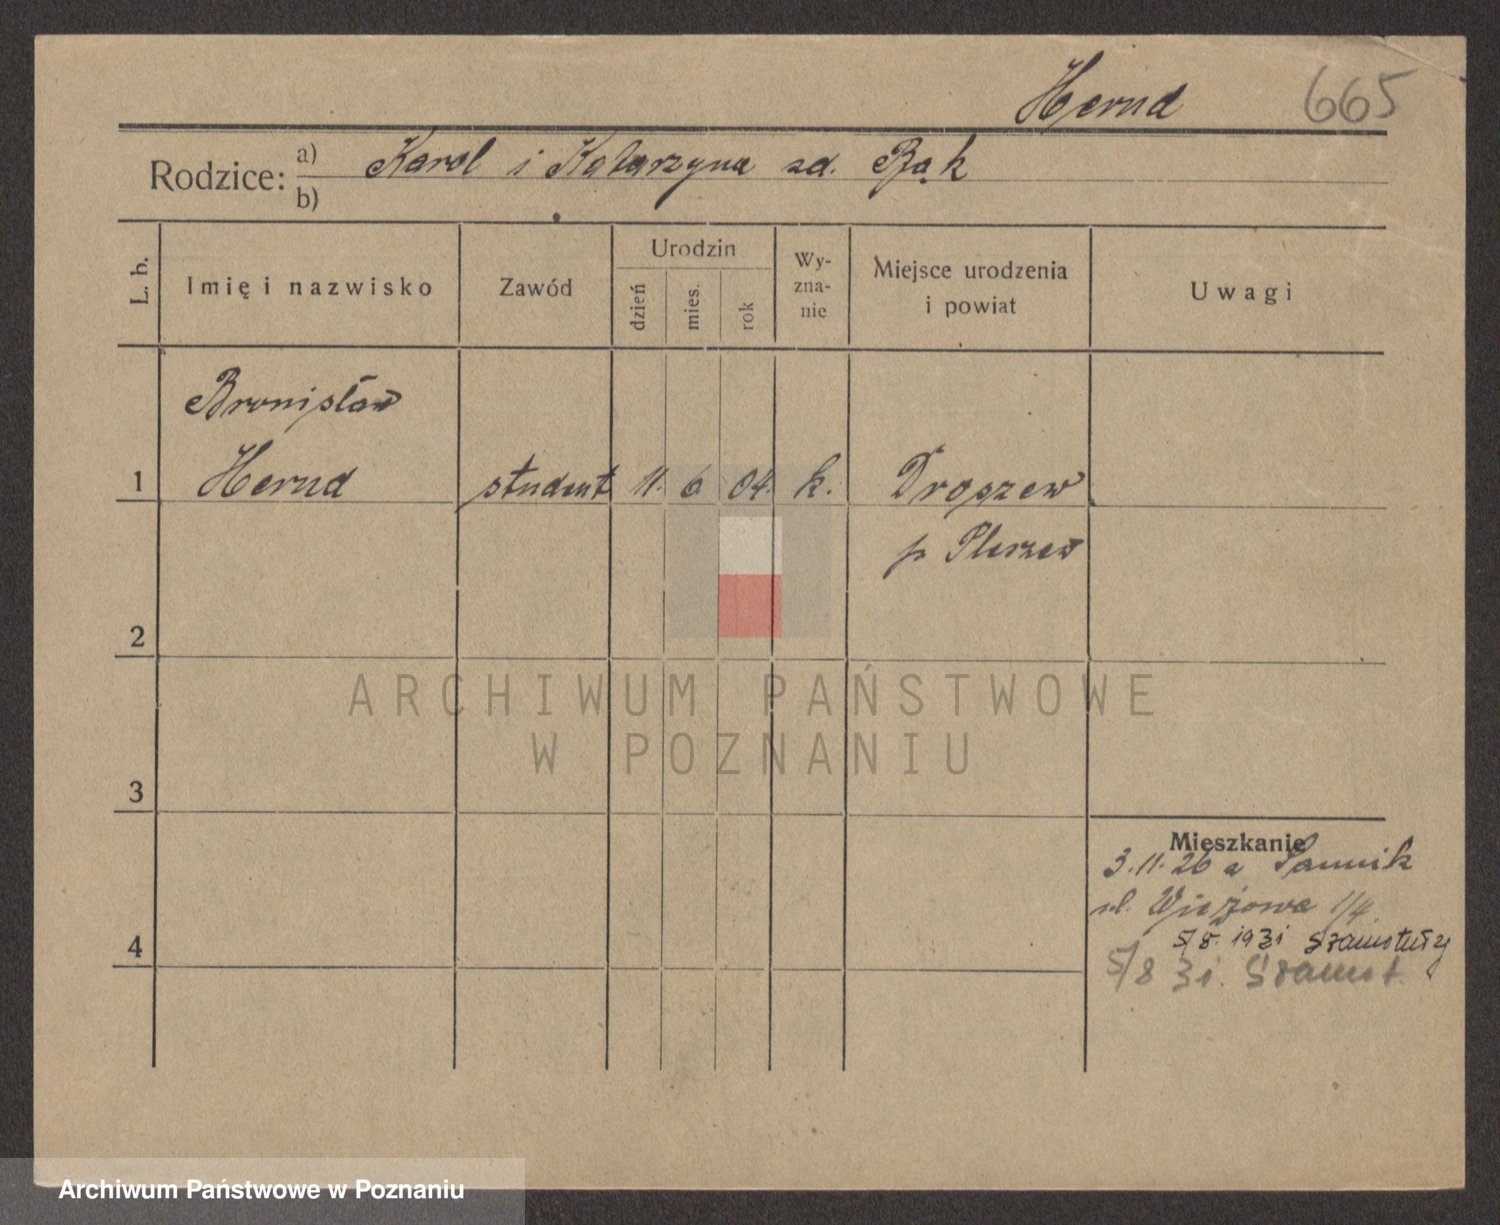 Hernd 665
Rodzice: a) Karol i Katarzyna zd. Bąk
b)
L. b. Imię i nazwisko Zawód Urodzin dzień mies. rok Wyznanie Miejsce urodzenia i powiat Uwagi
Bronisław
1 Hernd student 11. 6 04. k. Droszew
p Pleszew
2
ARCHIWUM PAŃSTWOWE
W POZNANIU
3
Mieszkanie
3.11.26 a
ul. Wieżowa 1/4
5/8. 1931 Szamotuły
4
5/8 31. Szamot.
Archiwum Państwowe w Poznaniu